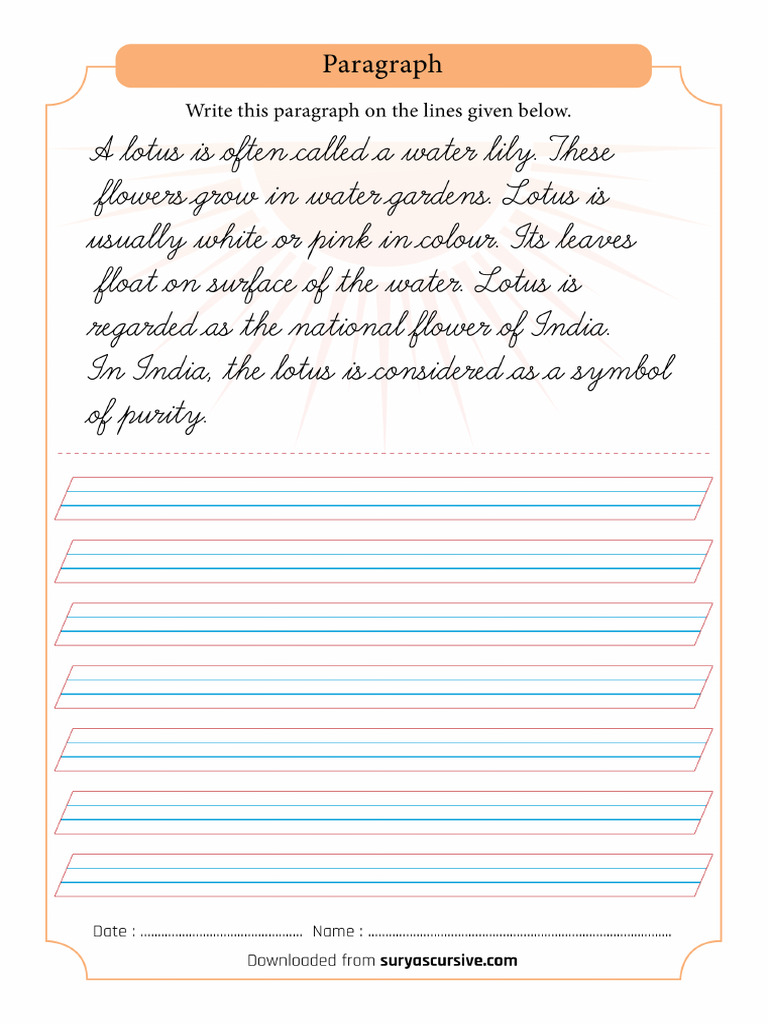 Paragraph
Write this paragraph on the lines given below.
A lotus is often called a water lily. These
flowers grow in water gardens. Lotus is
usually white or pink in colour. Its leaves
float on surface of the water. Lotus is
regarded as the national flower of India.
In India, the lotus is considered as a symbol
of purity.
Date : ............................................... Name : ........................................................................................
Downloaded from suryascursive.com